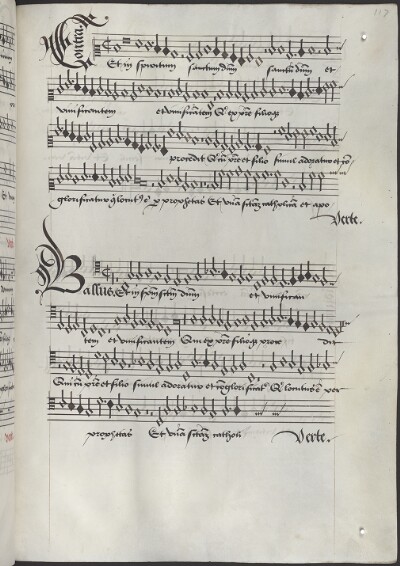 117
Contra
Et in spiritum sanctum dnm sanctu dnm et
vivificantem et vivificantem Q ex pre filioq
procedit Q cu pre et filio simul adoratur et co
glorificatur q locut e p prophetas Et una sctam catholicam et apo
Verte.
Bassus. Et in spm sctm dnm et vivifican
tem et vivificantem Qui ex pre filioq proce dit
Qui cu pre et filio simul adoratur et coglorificat Q locutus e per
prophetas Et una sctam catholi Verte.